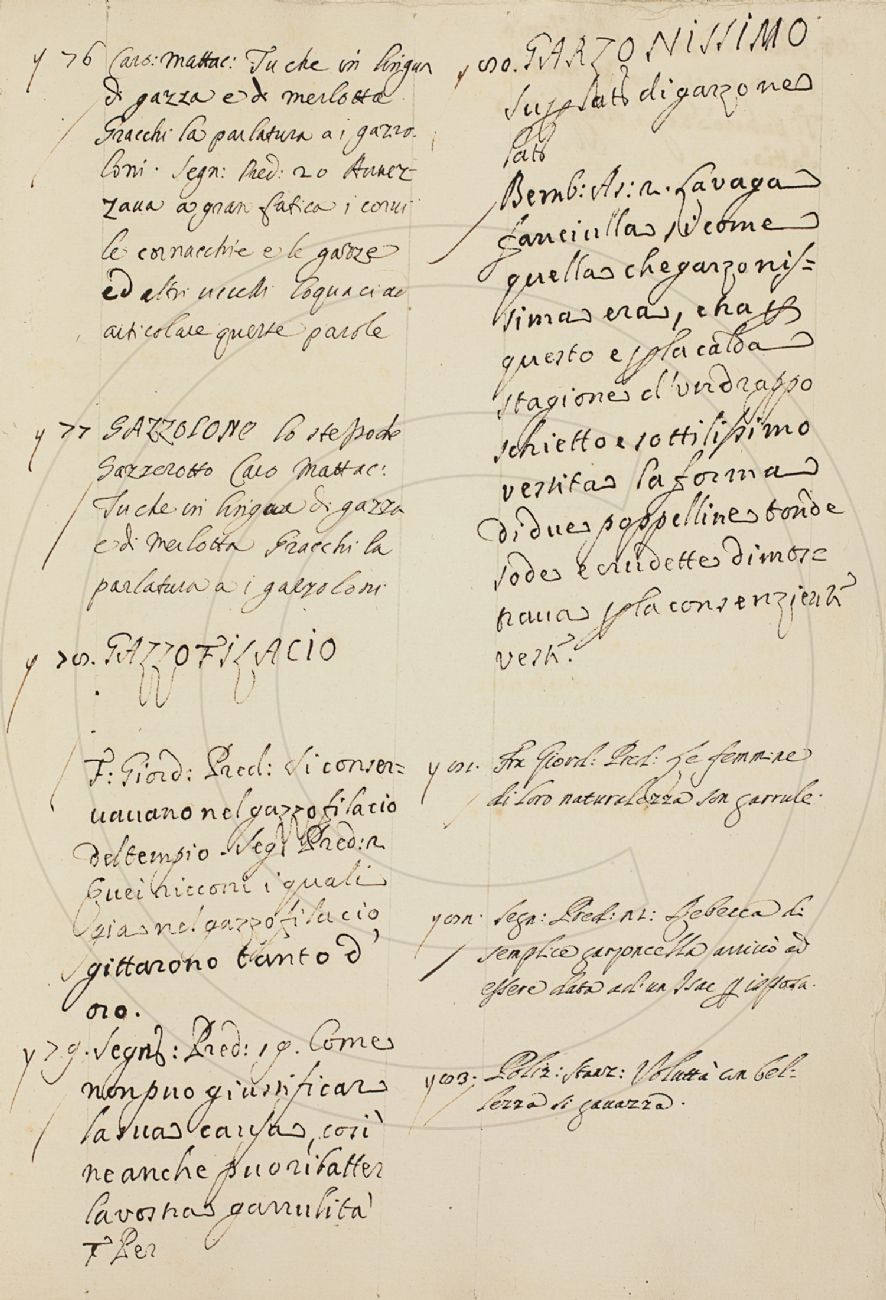 76 Caro: Mattac: Tu che in lingua
di gazza e di merlotta
Gracchi la parlatura a i gazzo-
loni. Segn: Pred: 20 Avvez-
zava a gran fatica i corvi
le cornacchie e le gazze
ed altri uccelli loquaci ad
articolare queste parole
77 GAZZOLONE lo stesso che
Gazzerotto Caro Mattac:
Tu che in lingua di gazza
e di Merlotta Gracchi la
parlatura a i gazzoloni
78. GAZZOFILACIO
F: Giord: Pred: Si conser=
vavano nel gazzofilacio
del tempio. Segn Pred: 2
Quei ricconi i quali
già nel gazzofilacio
gittarono tanto d'
oro.
79. Segn: Pred: 19. Come
non puo giustificar
la sua causa, così
ne anche può ribatter
la vostra garrulità
F Per
80. GARZONISSIMO
Superlat di garzone
lat
Bemb: As: 2. La vaga
fanciulla, sì come
quella che garzonis=
sima era, e ha
questo e p la calda
stagione d'un drappo
schietto e sottilissimo
vestita la forma
di due poppelline tonde
sode e crudette dimos=
trava p la consenziente
veste.
81. Fra Giord: Pred: Le femmine
di loro naturalezza son garrule.
82. Segn: Pred: 21: Rebecca di
semplice garzoncella arrivò ad
essere data ad un Isac p isposa.
83: Poliz: Stanz: Voluttà con bel-
lezza si gavazza.